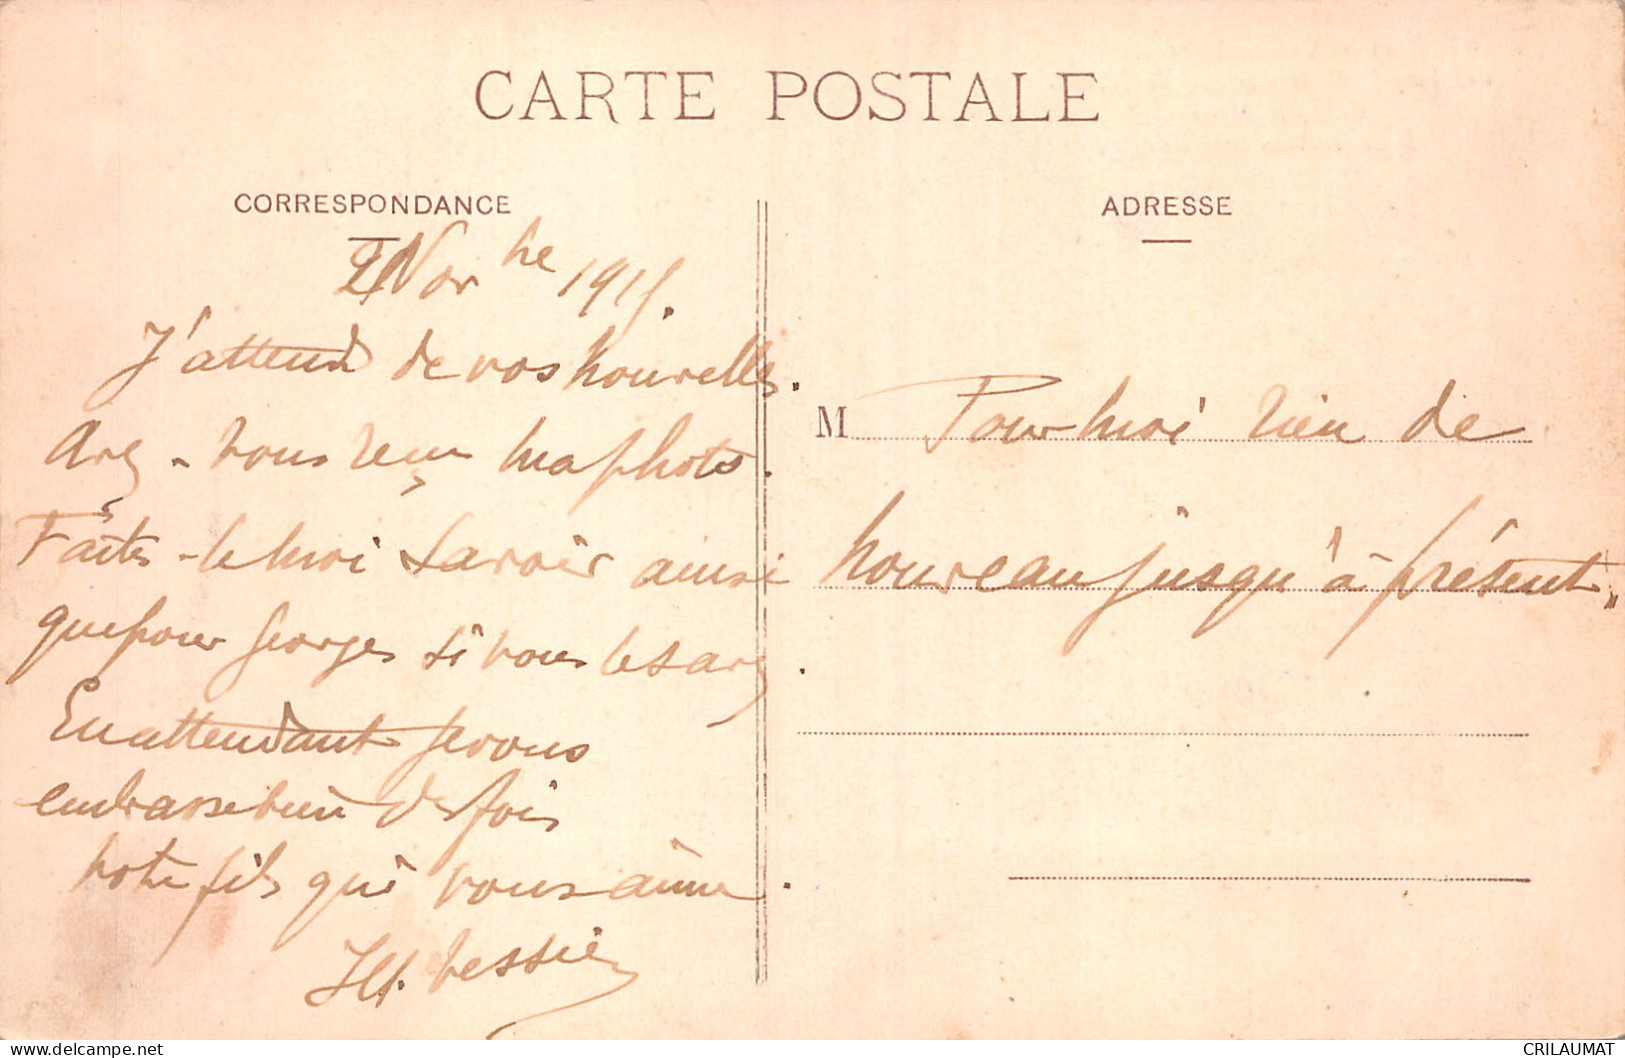 CARTE POSTALE
CORRESPONDANCE
ADRESSE
2 Novbre 1915.
J'attend de vos nouvelles.
Avez-vous reçu ma photo.
Faites-le moi savoir ainsi
que pour Georges si vous le savez.
En attendant je vous
embrasse bien des fois
votre fils qui vous aime.
M Pour moi rien de
nouveau jusqu'à présent.
delcampe.net
CRILAUMAT